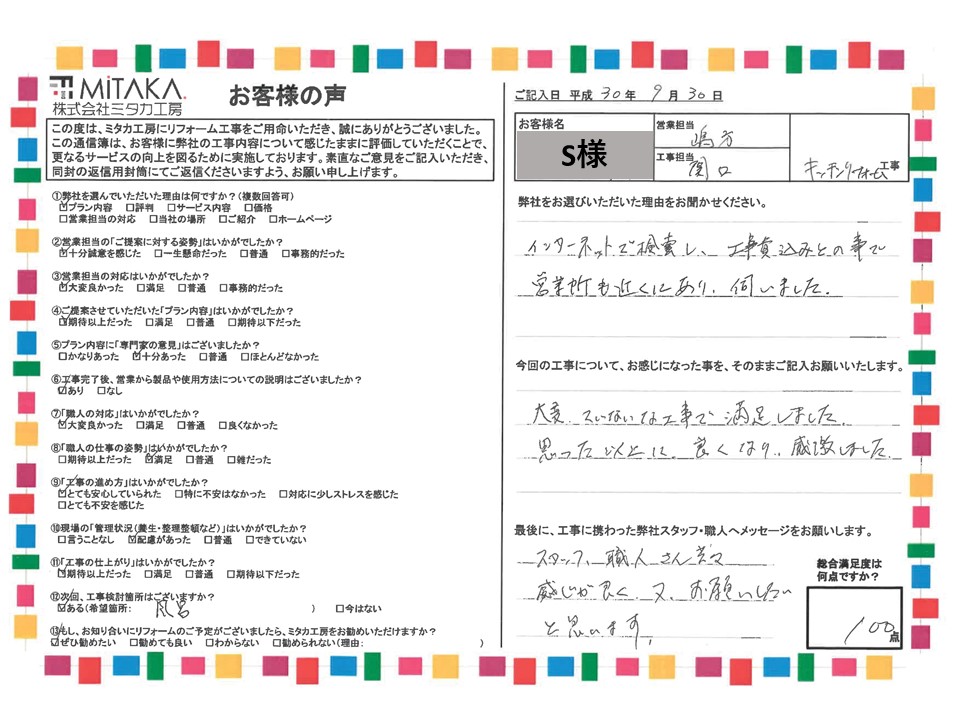 MiTAKA.
株式会社ミタカ工房
お客様の声
この度は、ミタカ工房にリフォーム工事をご用命いただき、誠にありがとうございました。
この通信簿は、お客様に弊社の工事内容について感じたままに評価していただくことで、
更なるサービスの向上を図るために実施しております。素直なご意見をご記入いただき、
同封の返信用封筒にてご返信くださいますよう、お願い申し上げます。
①弊社を選んでいただいた理由は何ですか?(複数回答可)
☑プラン内容 □評判 □サービス内容 □価格
□営業担当の対応 □当社の場所 □ご紹介 □ホームページ
②営業担当の「ご提案に対する姿勢」はいかがでしたか?
☑十分誠意を感じた □一生懸命だった □普通 □事務的だった
③営業担当の対応はいかがでしたか?
☑大変良かった □満足 □普通 □事務的だった
④ご提案させていただいた「プラン内容」はいかがでしたか?
☑期待以上だった □満足 □普通 □期待以下だった
⑤プラン内容に「専門家の意見」はございましたか?
□かなりあった ☑十分あった □普通 □ほとんどなかった
⑥工事完了後、営業から製品や使用方法についての説明はございましたか?
☑あり □なし
⑦「職人の対応」はいかがでしたか?
☑大変良かった □満足 □普通 □良くなかった
⑧「職人の仕事の姿勢」はいかがでしたか?
□期待以上だった ☑満足 □普通 □雑だった
⑨「工事の進め方」はいかがでしたか?
☑とても安心していられた □特に不安はなかった □対応に少しストレスを感じた
□とても不安を感じた
⑩現場の「管理状況(養生・整理整頓など)」はいかがでしたか?
□言うことなし ☑配慮があった □普通 □できていない
⑪「工事の仕上がり」はいかがでしたか?
☑期待以上だった □満足 □普通 □期待以下だった
⑫次回、工事検討箇所はございますか?
☑ある(希望箇所: 風呂 ) □今はない
⑬もし、お知り合いにリフォームのご予定がございましたら、ミタカ工房をお勧めいただけますか?
☑ぜひ勧めたい □勧めても良い □わからない □勧められない(理由: )
ご記入日 平成 30年 9月 30日
お客様名
S様
営業担当
嶋方
工事担当
関口
キッチンリフォーム工事
弊社をお選びいただいた理由をお聞かせください。
インターネットで検索し、工事費込みとの事で
営業所も近くにあり、伺いました。
今回の工事について、お感じになった事を、そのままご記入お願いいたします。
大変、ていねいな工事で満足しました。
思った以上に、良くなり、感激しました。
最後に、工事に携わった弊社スタッフ・職人へメッセージをお願いします。
スタッフ、職人さん等々
感じが良く、又、お願いしたい
と思います。
総合満足度は
何点ですか?
100点